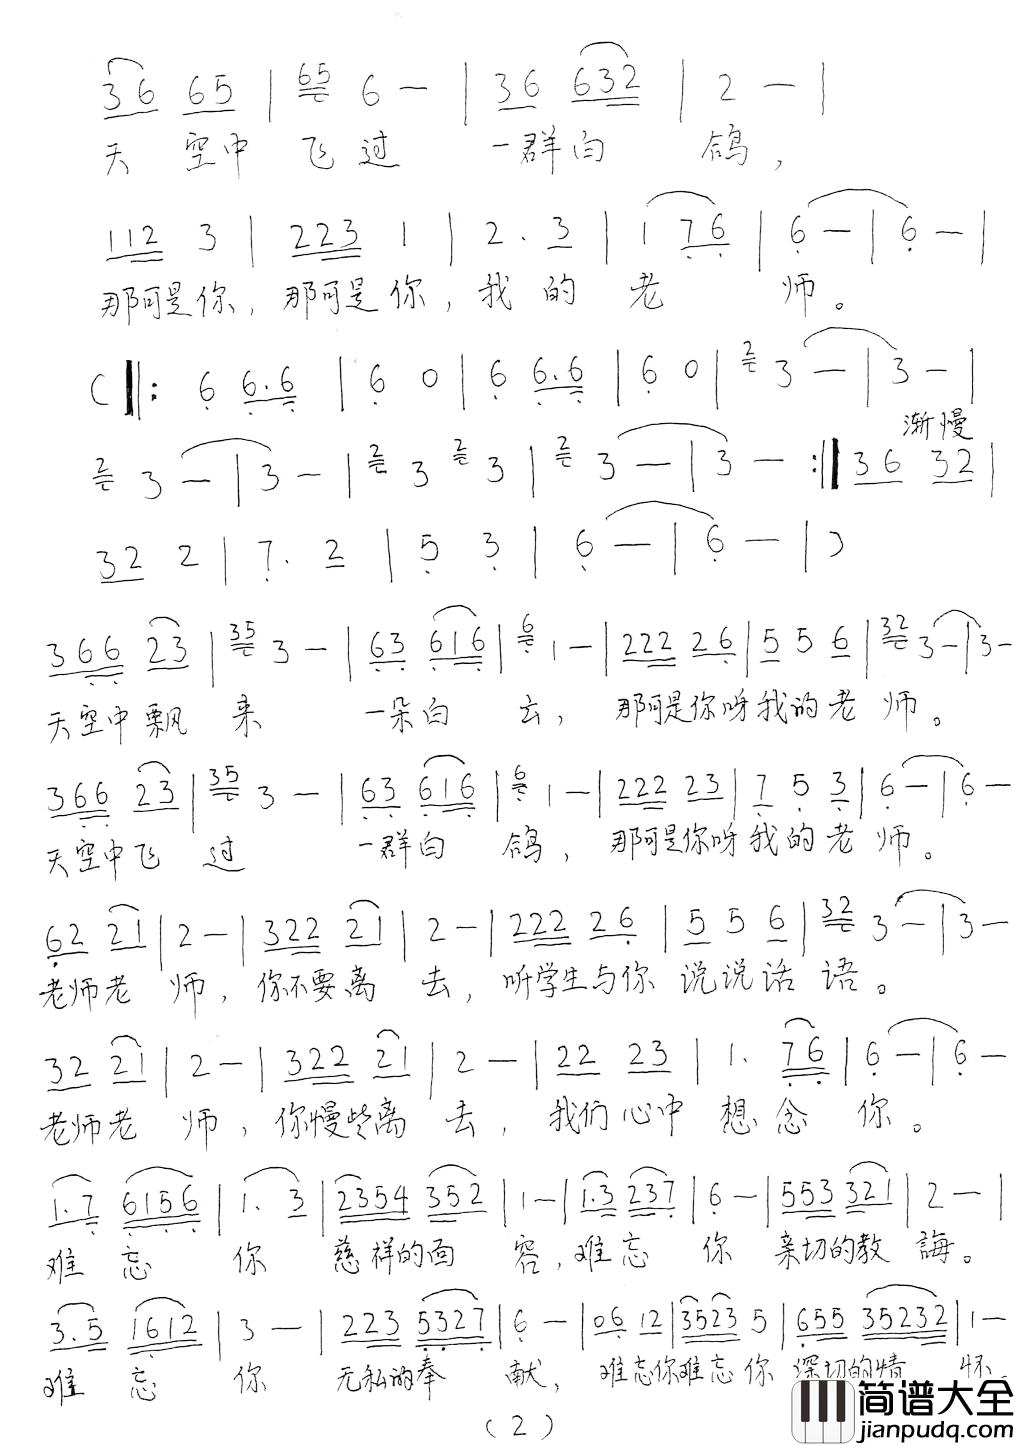 3 6 6 5 | 65 6 — | 3 6 6 3 2 | 2 — |
天 空中 飞过 一群白 鸽，
1 1 2 3 | 2 2 3 1 | 2 . 3 | 1 7 6 | 6 — | 6 — |
那可是你，那可是你，我的 老 师。
( ‖: 6 6 . 6 | 6 0 | 6 6 . 6 | 6 0 | 2 3 — | 3 — |
渐慢
2 3 — | 3 — | 2 3 2 3 | 2 3 — | 3 — :‖ 3 6 3 2 |
3 2 2 | 7 . 2 | 5 3 | 6 — | 6 — | )
3 6 6 2 3 | 35 3 — | 6 3 6 1 6 | 6 1 — | 2 2 2 2 6 | 5 5 6 | 32 3 — | 3 —
天空中飘 来 一朵白 云， 那可是你呀我的老 师。
3 6 6 2 3 | 35 3 — | 6 3 6 1 6 | 6 1 — | 2 2 2 2 3 | 7 5 3 | 6 — | 6 —
天空中飞 过 一群白 鸽， 那可是你呀我的老 师。
6 2 2 1 | 2 — | 3 2 2 2 1 | 2 — | 2 2 2 2 6 | 5 5 6 | 32 3 — | 3 —
老师老 师，你不要离 去，听学生与你 说说话 语。
3 2 2 1 | 2 — | 3 2 2 2 1 | 2 — | 2 2 2 3 | 1 . 7 6 | 6 — | 6 —
老师老 师，你慢些离 去， 我们心中 想念 你。
1 . 7 6 1 5 6 | 1 . 3 | 2 3 5 4 3 5 2 | 1 — | 1 . 3 2 3 7 | 6 — | 5 5 3 3 2 1 | 2 — |
难 忘 你 慈祥的面 容，难忘 你 亲切的教 誨。
3 . 5 1 6 1 2 | 3 — | 2 2 3 5 3 2 7 | 6 — | 0 6 1 2 | 3 5 2 3 5 | 6 5 5 3 5 2 3 2 | 1 —
难 忘 你 无私的奉 献， 难忘你难忘你 深切的情 怀。
（2）
简谱大全
jianpudq.com